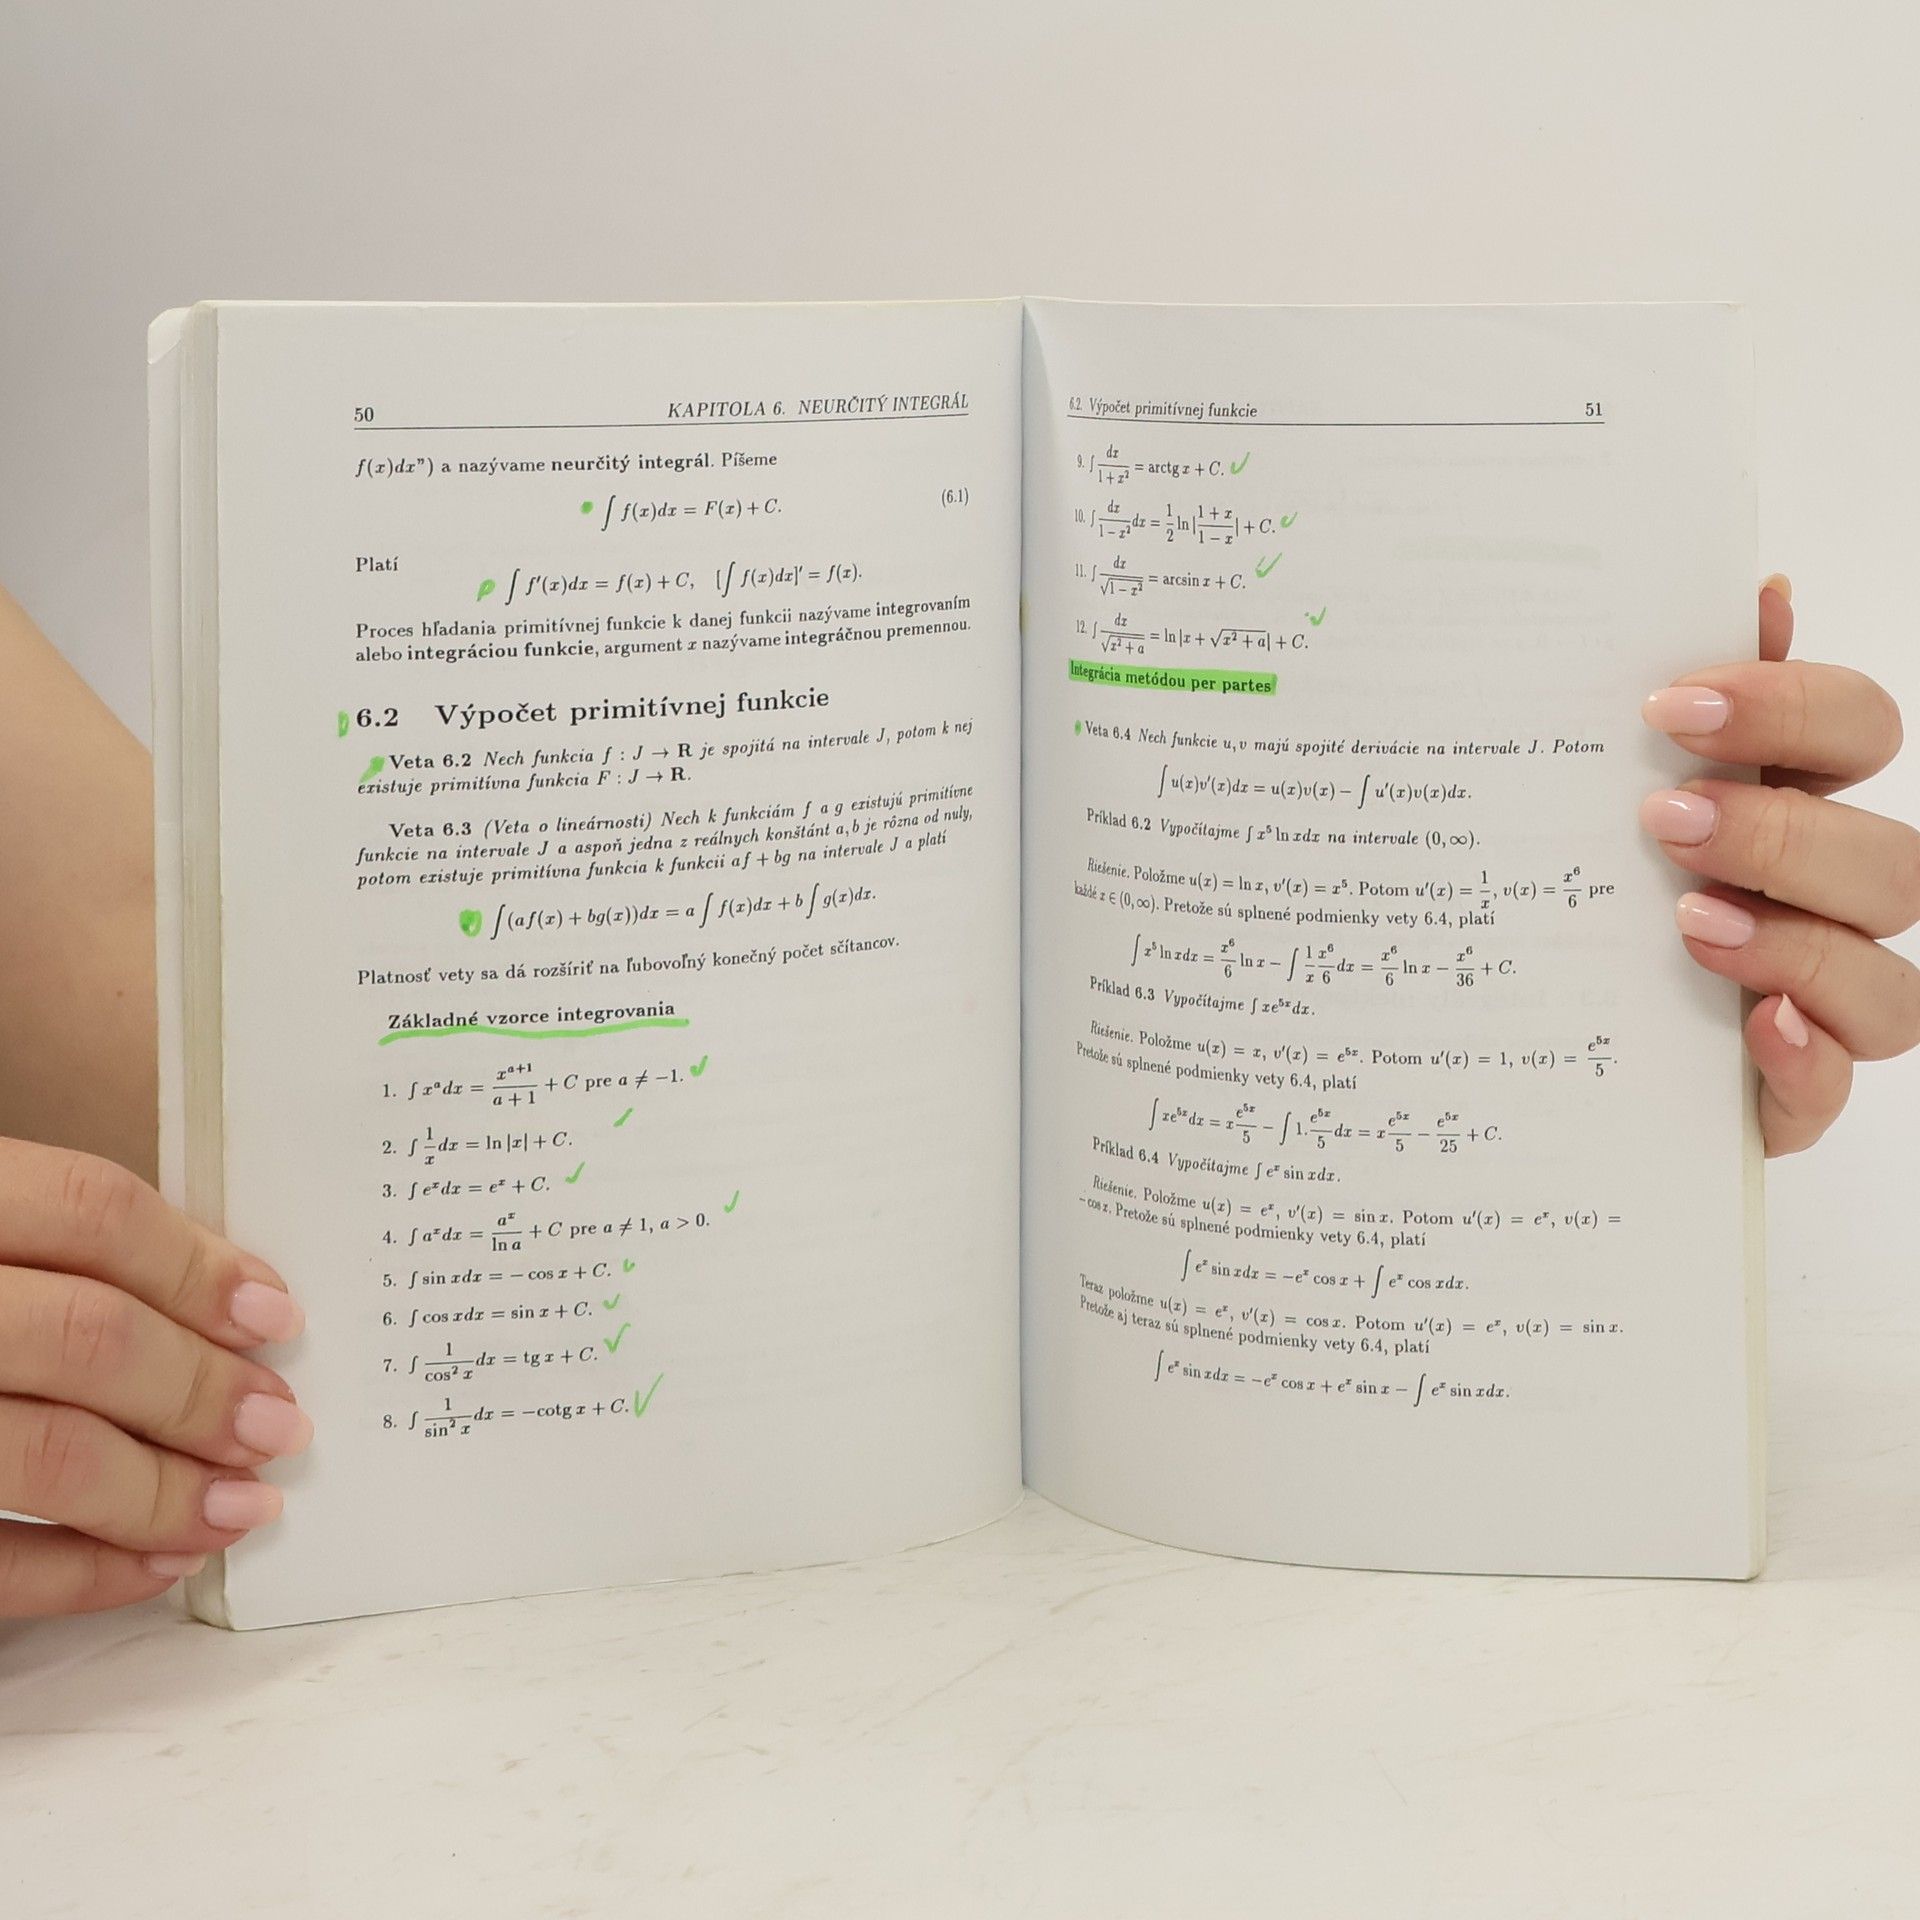 50 KAPITOLA 6. NEURČITÝ INTEGRÁL
f(x)dx”) a nazývame neurčitý integrál. Píšeme
∫ f(x)dx = F(x) + C. (6.1)
Platí
∫ f′(x)dx = f(x) + C, [∫ f(x)dx]′ = f(x).
Proces hľadania primitívnej funkcie k danej funkcii nazývame integrovaním
alebo integráciou funkcie, argument x nazývame integráčnou premennou.
6.2 Výpočet primitívnej funkcie
Veta 6.2 Nech funkcia f : J → R je spojitá na intervale J, potom k nej
existuje primitívna funkcia F : J → R.
Veta 6.3 (Veta o lineárnosti) Nech k funkciám f a g existujú primitívne
funkcie na intervale J a aspoň jedna z reálnych konštánt a, b je rôzna od nuly,
potom existuje primitívna funkcia k funkcii af + bg na intervale J a platí
∫(af(x) + bg(x))dx = a ∫ f(x)dx + b ∫ g(x)dx.
Platnosť vety sa dá rozšíriť na ľubovoľný konečný počet sčítancov.
Základné vzorce integrovania
1. ∫ xᵃdx = xᵃ⁺¹/(a + 1) + C pre a ≠ −1.
2. ∫ 1/x dx = ln |x| + C.
3. ∫ eˣdx = eˣ + C.
4. ∫ aˣdx = aˣ/ln a + C pre a ≠ 1, a > 0.
5. ∫ sin xdx = − cos x + C.
6. ∫ cos xdx = sin x + C.
7. ∫ 1/cos² x dx = tg x + C.
8. ∫ 1/sin² x dx = −cotg x + C.
6.2. Výpočet primitívnej funkcie 51
9. ∫ dx/(1 + x²) = arctg x + C.
10. ∫ dx/(1 − x²) dx = 1/2 ln |(1 + x)/(1 − x)| + C.
11. ∫ dx/√(1 − x²) = arcsin x + C.
12. ∫ dx/√(x² + a) = ln |x + √(x² + a)| + C.
Integrácia metódou per partes
Veta 6.4 Nech funkcie u, v majú spojité derivácie na intervale J. Potom
∫ u(x)v′(x)dx = u(x)v(x) − ∫ u′(x)v(x)dx.
Príklad 6.2 Vypočítajme ∫ x⁵ ln xdx na intervale (0, ∞).
Riešenie. Položme u(x) = ln x, v′(x) = x⁵. Potom u′(x) = 1/x, v(x) = x⁶/6 pre
každé x ∈ (0, ∞). Pretože sú splnené podmienky vety 6.4, platí
∫ x⁵ ln xdx = x⁶/6 ln x − ∫ 1/x x⁶/6 dx = x⁶/6 ln x − x⁶/36 + C.
Príklad 6.3 Vypočítajme ∫ xe⁵ˣdx.
Riešenie. Položme u(x) = x, v′(x) = e⁵ˣ. Potom u′(x) = 1, v(x) = e⁵ˣ/5.
Pretože sú splnené podmienky vety 6.4, platí
∫ xe⁵ˣdx = x e⁵ˣ/5 − ∫ 1. e⁵ˣ/5 dx = x e⁵ˣ/5 − e⁵ˣ/25 + C.
Príklad 6.4 Vypočítajme ∫ eˣ sin xdx.
Riešenie. Položme u(x) = eˣ, v′(x) = sin x. Potom u′(x) = eˣ, v(x) =
− cos x. Pretože sú splnené podmienky vety 6.4, platí
∫ eˣ sin xdx = −eˣ cos x + ∫ eˣ cos xdx.
Teraz položme u(x) = eˣ, v′(x) = cos x. Potom u′(x) = eˣ, v(x) = sin x.
Pretože aj teraz sú splnené podmienky vety 6.4, platí
∫ eˣ sin xdx = −eˣ cos x + eˣ sin x − ∫ eˣ sin xdx.